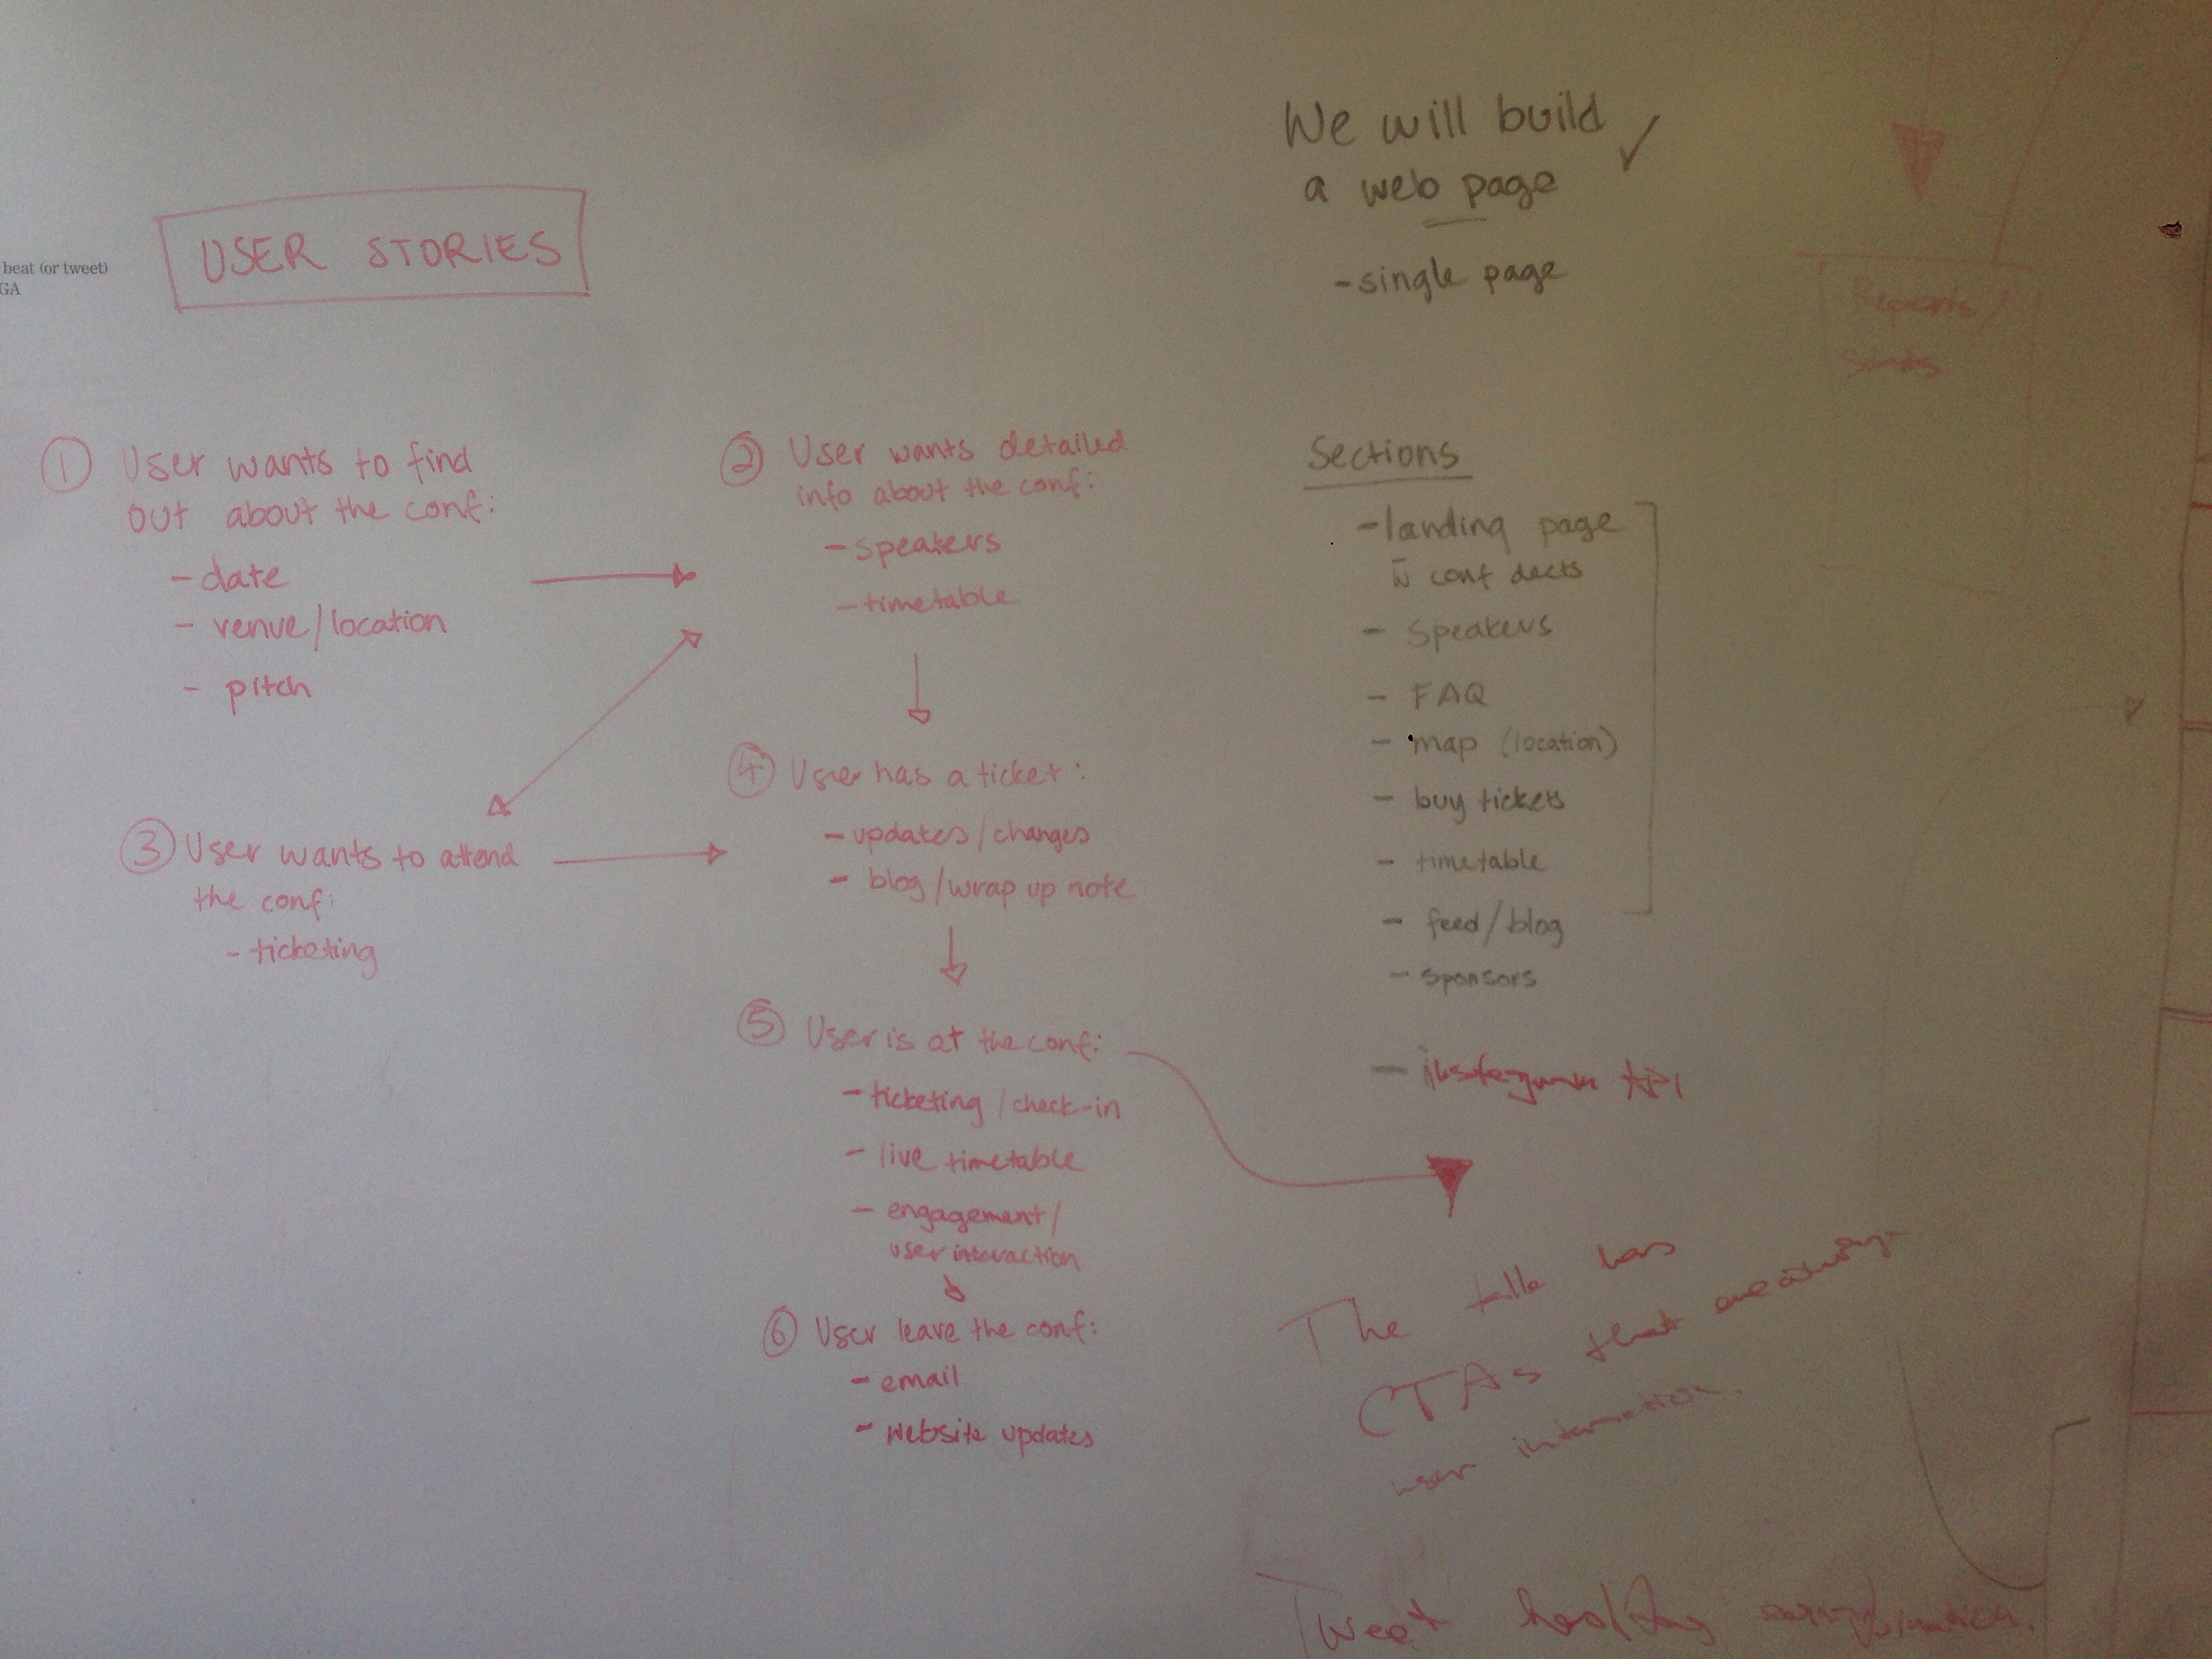 beat (or tweet)
GA
USER STORIES
① User wants to find
out about the conf:
- date
- venue/location
- pitch
② User wants detailed
info about the conf:
- speakers
- timetable
③ User wants to attend
the conf:
- ticketing
④ User has a ticket:
- updates/changes
- blog/wrap up note
⑤ User is at the conf:
- ticketing/check-in
- live timetable
- engagement/
user interaction
⑥ User leave the conf:
- email
- website updates
We will build ✓
a web page
- single page
Sections
- landing page
w conf
- Speakers
- FAQ
- map (location)
- buy tickets
- timetable
- feed/blog
- sponsors
- instagram API
The talk has
CTAs that encourage
user interaction.
Tweet hashtag